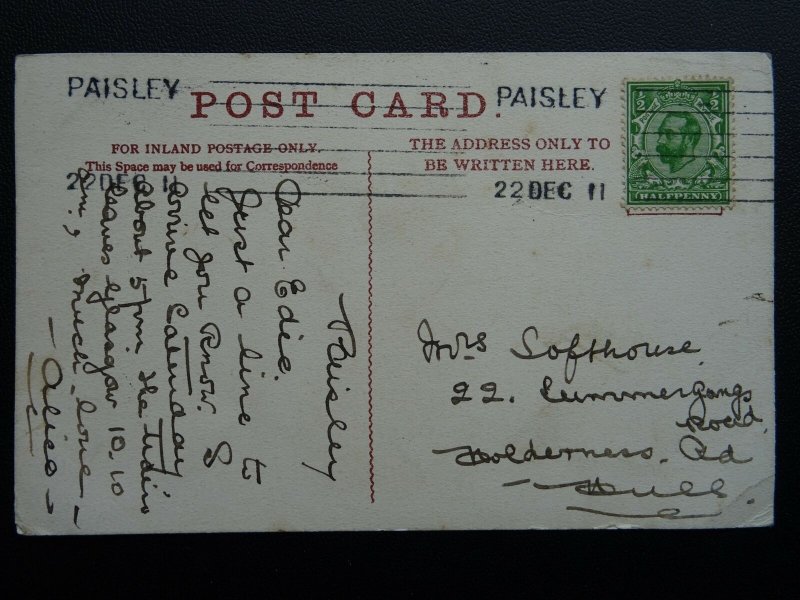 PAISLEY
POST CARD.
PAISLEY
FOR INLAND POSTAGE ONLY.
This Space may be used for Correspondence
THE ADDRESS ONLY TO
BE WRITTEN HERE.
22 DEC 11
22 DEC 11
1/2 1/2
HALFPENNY
Paisley
Dear Edie.
Just a line to
let you know. I
arrive
about 5 pm the train
leaves Glasgow 10.10
am., much love
Alice
Mrs Softhouse
22. Summergangs
Road,
Holderness. Rd
Hull.